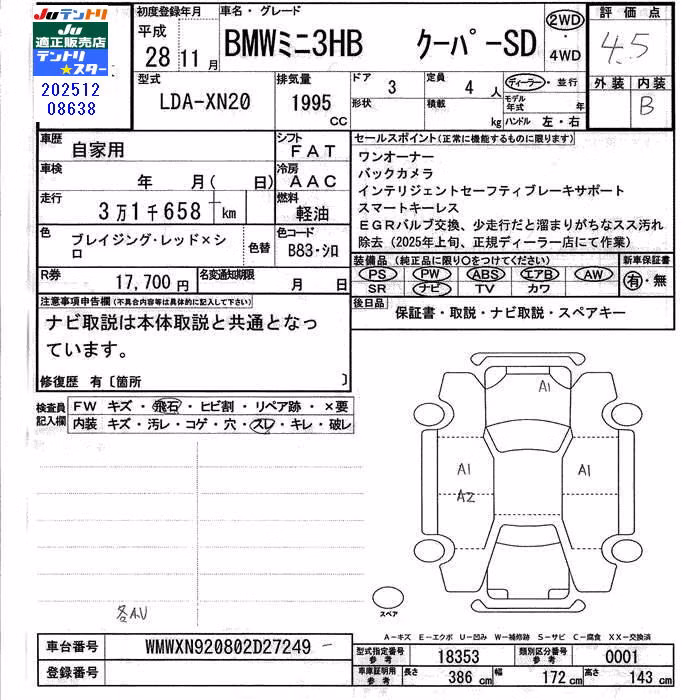 Juテントリ
Ju
適正販売店
テントリ
★スター
202512
08638
初度登録年月
平成
28 11 月
車名・グレード
BMWミニ3HB クーパーSD
2WD
4WD
評価点
4.5
外装 内装
B
型式
LDA-XN20
排気量
1995
CC
ドア
3
形状
定員
4 人
積載
kg
ディーラー・並行
モデル年式 年
ハンドル 左・右
車歴
自家用
シフト
FAT
車検
年 月( 日)
冷房
AAC
走行
3万1千658 km
燃料
軽油
色
ブレイジング・レッド×シロ
色替
色コード
B83・シロ
R券
17,700 円
名変通知期限
月 日
セールスポイント(正常に機能するものに限ります)
ワンオーナー
バックカメラ
インテリジェントセーフティブレーキサポート
スマートキーレス
EGRバルブ交換、少走行だと溜まりがちなスス汚れ
除去(2025年上旬、正規ディーラー店にて作業)
装備品(純正品に限り○をつけてください)
新車保証書
PS PW ABS エアB AW
SR ナビ TV カワ
有・無
後日品
保証書・取説・ナビ取説・スペアキー
注意事項申告欄(不具合内容等は具体的に記入して下さい)
ナビ取説は本体取説と共通となっ
ています。
修復歴 有〔箇所 〕
検査員
記入欄
FW キズ・飛石・ヒビ割・リペア跡・×要
内装 キズ・汚レ・コゲ・穴・スレ・キレ・破レ
A1
A1
A2
A1
各A.U
スペア
A-キズ E-エクボ U-凹み W-補修跡 S-サビ C-腐食 XX-交換済
車台番号
WMWXN920802D27249
登録番号
型式指定番号
参考
18353
類別区分番号
参考
0001
車庫証明用
参考
長さ 386 cm
幅 172 cm
高さ 143 cm